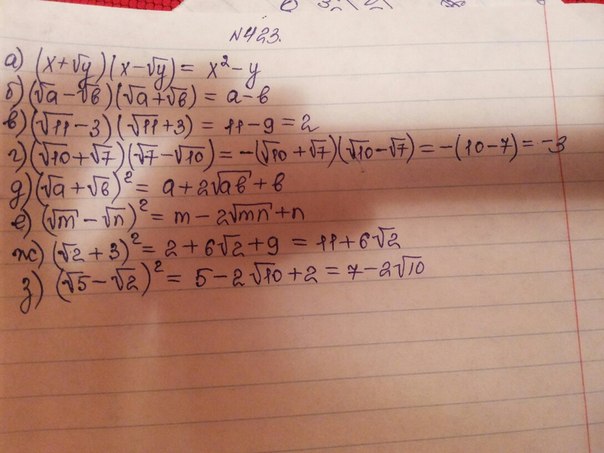 №423.
а) (x+√y)(x-√y) = x²-y
б) (√a-√b)(√a+√b) = a-b
в) (√11-3)(√11+3) = 11-9=2
г) (√10+√7)(√7-√10) = -(√10+√7)(√10-√7) = -(10-7) = -3
д) (√a+√b)² = a+2√ab+b
е) (√m-√n)² = m-2√mn+n
ж) (√2+3)² = 2+6√2+9 = 11+6√2
з) (√5-√2)² = 5-2√10+2=7-2√10